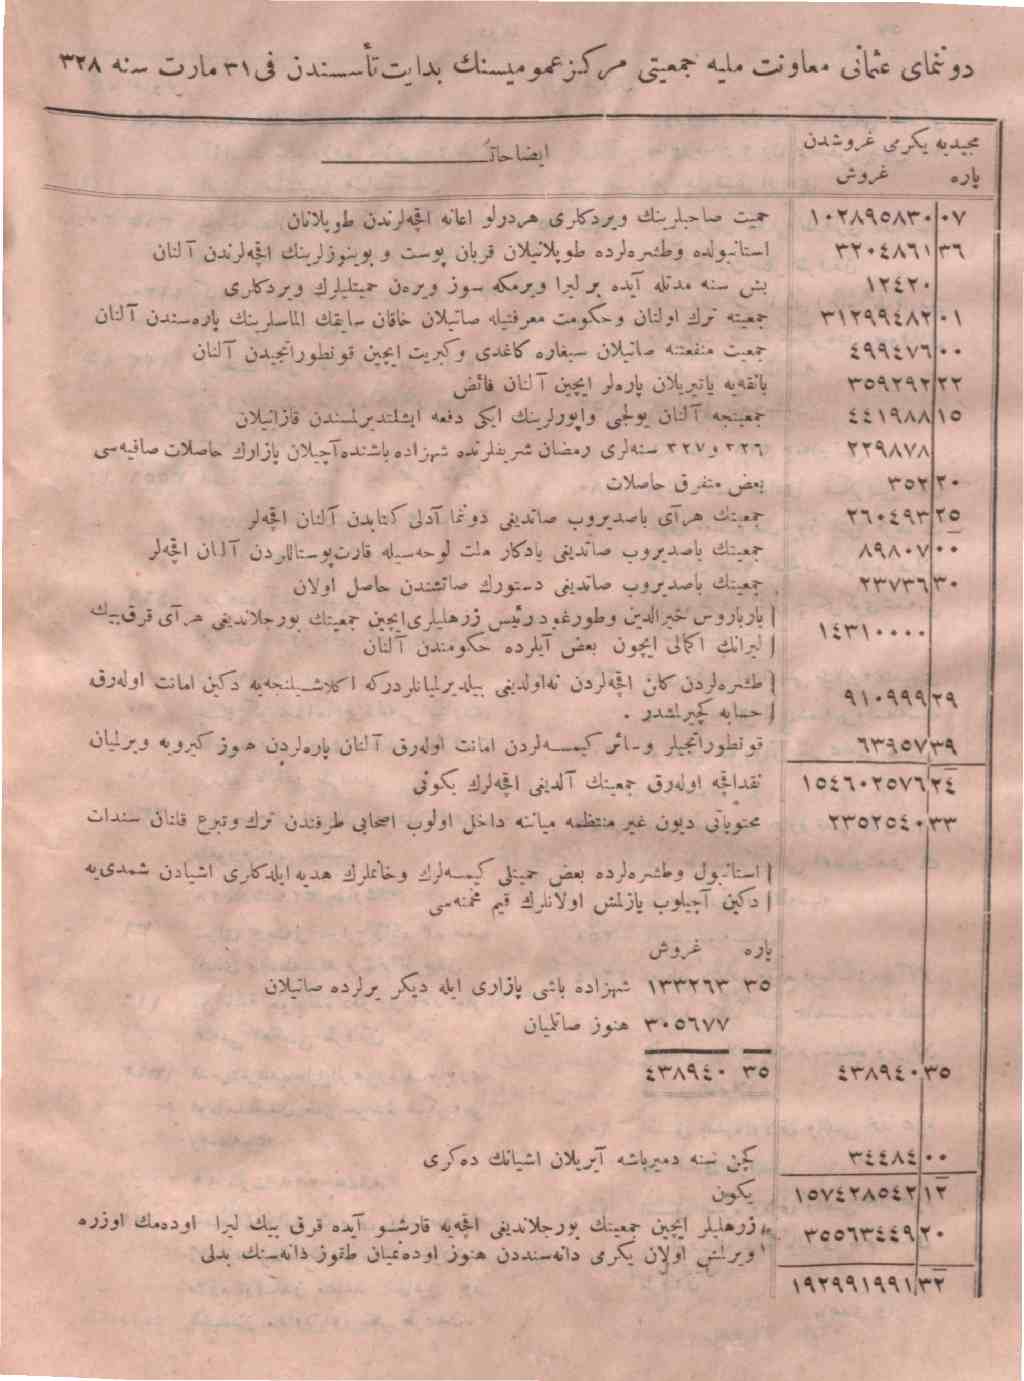 دوننمای عثمانی معاونت ملیه جمعیتی مركز عمومیسنك بدایت تأسسندن فی ٣١ مارت سنه ٣٢٨
مجیدیه یكرمی غروشدن
ایضاحات
پاره غروش
٠٧ ١٠٢٨٩٥٨٣٠ حمیت صاحبلرینك ویردكلری هردرلو اعانه اقچه‌لرندن طوپلانان
٣٦ ٣٢٠٤٨٦١ استانبولده وطشره‌لرده طوپلانیلان قربان پوست و بوینوزلرینك اقچه‌لرندن آلنان
١٢٤٢٠ بش سنه مدتله آیده بر لیرا ویرمكه سوز ویره‌ن حمیتلیلرك ویردكلری
٠١ ٣١٢٩٩٤٨٢ جمعیته ترك اولنان وحكومت معرفتیله صاتیلان خاقان سابقك الماسلرینك پاره‌سندن آلنان
٠٠ ٤٩٩٤٧٦ جمعیت منفعتنه صاتیلان سیغاره كاغدی وكبریت ایچین قونطوراتجیدن آلنان
٢٢ ٣٥٩٢٩٢ بانقه‌یه یاتیریلان پاره‌لر ایچین آلنان فائض
١٥ ٤٤١٩٨٨ جمعیتجه آلنان یولجی واپورلرینك ایكی دفعه ایشلتدیرلمسندن قازانیلان
٢٢٩٨٧٨ ٣٢٦ و ٣٢٧ سنه‌لری رمضان شریفلرنده شهزاده باشنده آچیلان پازارك حاصلات صافیه‌سی
٢٠ ٣٥٢٢ بعض متفرق حاصلات
٢٥ ٢٦٠٤٩٣ جمعیتك هرآی باصدیروب صاتدیغی دوننما آدلی كتابدن آلنان اقچه‌لر
٠٠ ٨٩٨٠٧ جمعیتك باصدیروب صاتدیغی یادكار ملت لوحه‌سیله قارت‌پوستاللردن آلنان اقچه‌لر
٣٠ ٢٣٧٣٦ جمعیتك باصدیروب صاتدیغی دستورك صاتشندن حاصل اولان
١٤٣١٠٠٠٠ بارباروس خیرالدین وطورغود رئیس زرهلیلری ایچین جمعیتك بورجلاندیغی هر آی قرق بیك
لیرانك اكمالی ایچون بعض آیلرده حكومتدن آلنان
٢٩ ٩١٠٩٩٩ طشره‌لردن كلن اقچه‌لردن نه اولدیغی بیلدیرلمیانلردركه اكلاشیلنجه‌یه دكین امانت اوله‌رق
حسابه كچیرلمشدر .
٣٩ ٦٣٩٥٧ قونطوراتجیلر وسائر كیمسه‌لردن امانت اوله‌رق آلنان پاره‌لردن هنوز كیرویه ویرلمیان
٢٤ ١٥٤٦٠٢٥٧٦ نقداقچه اوله‌رق جمعیتك آلدیغی اقچه‌لرك یكونی
٣٣ ٢٣٥٢٥٤٠ محتویاتی دیون غیر منتظمه میاننه داخل اولوب اصحابی طرفندن ترك وتبرع قلنان سندات
استانبول وطشره‌لرده بعض حمیتلی كیمسه‌لرك وخانملرك هدیه ایلدكلری اشیادن شمدی‌یه
دكین آچیلوب یازلمش اولانلرك قیم مخمنه‌سی
پاره غروش
٣٥ ١٣٣٢٦٣ شهزاده باشی پازاری ایله دیكر یرلرده صاتیلان
٣٠٥٦٧٧ هنوز صاتلمیان
٣٥ ٤٣٨٩٤٠ ٣٥ ٤٣٨٩٤٠
٠٠ ٣٤٤٨٤ كچن سنه دمیرباشه آیریلان اشیانك ده‌كری
١٢ ١٥٧٤٢٨٥٤٢ یكون
٢٠ ٣٥٥٦٣٤٤٩ زرهلیلر ایچین جمعیتك بورجلاندیغی اقچه‌یه قارشو آیده قرق بیك لیرا اوده‌مك اوزره
ویرلمش اولان یكرمی دانه‌سندن هنوز اوده‌نمیان طقوز دانه‌سنك بدلی
٣٢ ١٩٢٩٩١٩٩١